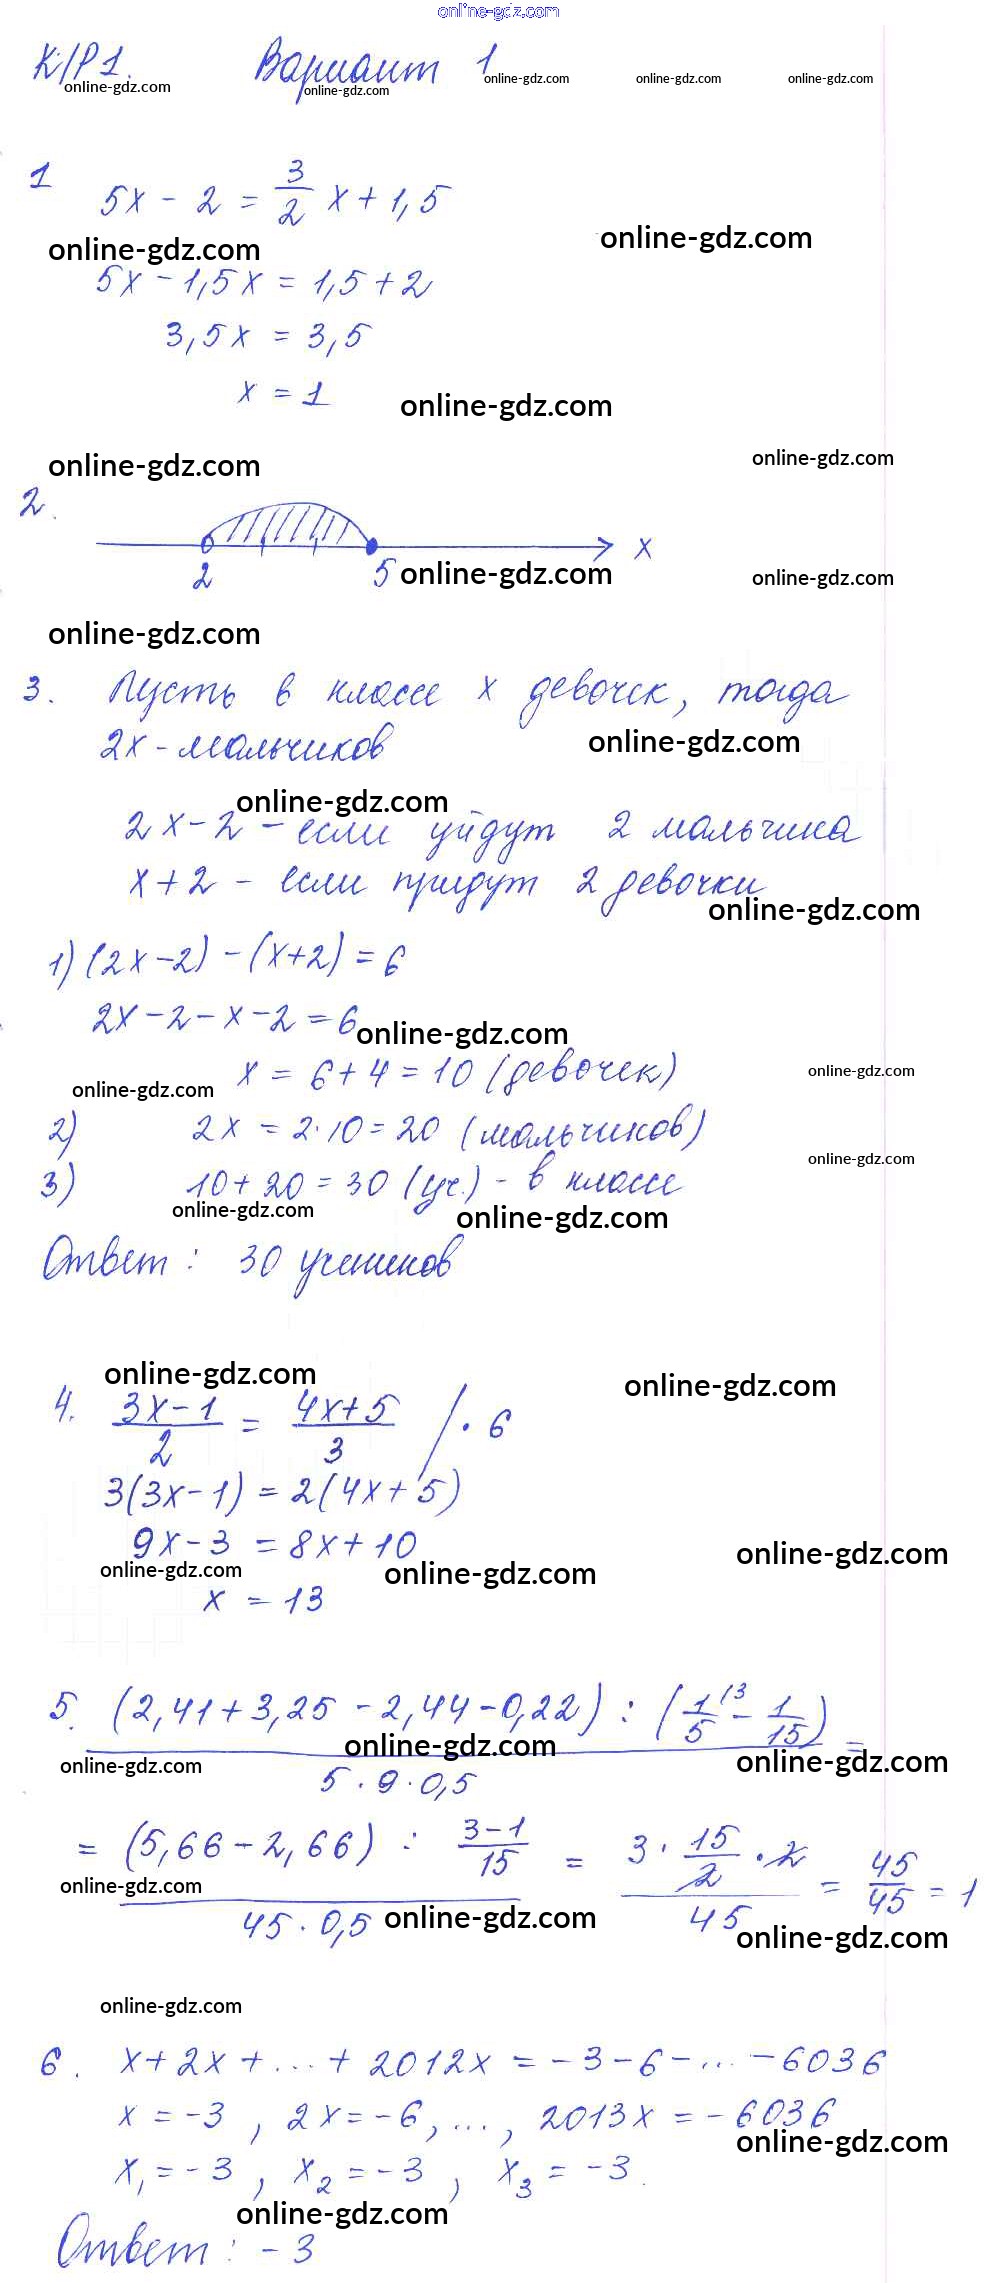 online-gdz.com
К/Р1. Вариант 1
online-gdz.com online-gdz.com online-gdz.com online-gdz.com online-gdz.com
1 5x - 2 = 3/2 x + 1,5
online-gdz.com online-gdz.com
5x - 1,5x = 1,5 + 2
3,5x = 3,5
x = 1
online-gdz.com
online-gdz.com online-gdz.com
2.
x
2 5
online-gdz.com online-gdz.com
online-gdz.com
3. Пусть в классе x девочек, тогда
2x - мальчиков
online-gdz.com
online-gdz.com
2x - 2 - если уйдут 2 мальчика
x + 2 - если придут 2 девочки
online-gdz.com
1) (2x - 2) - (x + 2) = 6
2x - 2 - x - 2 = 6
online-gdz.com
x = 6 + 4 = 10 (девочек)
online-gdz.com online-gdz.com
2) 2x = 2 · 10 = 20 (мальчиков)
online-gdz.com
3) 10 + 20 = 30 (уч.) - в классе
online-gdz.com online-gdz.com
Ответ: 30 учеников
online-gdz.com online-gdz.com
4. (3x - 1)/2 = (4x + 5)/3 / · 6
3(3x - 1) = 2(4x + 5)
9x - 3 = 8x + 10
online-gdz.com online-gdz.com online-gdz.com
x = 13
5. (2,41 + 3,25 - 2,44 - 0,22) : (1/5 \3 - 1/15) =
online-gdz.com online-gdz.com online-gdz.com
5 · 9 · 0,5
= (5,66 - 2,66) : (3 - 1)/15 = 3 · 15/2 · 2 = 45/45 = 1
online-gdz.com
45 · 0,5 45
online-gdz.com online-gdz.com
online-gdz.com
6. x + 2x + ... + 2012x = -3 - 6 - ... - 6036
x = -3, 2x = -6, ..., 2013x = -6036
online-gdz.com
x1 = -3, x2 = -3, x3 = -3.
online-gdz.com
Ответ: -3